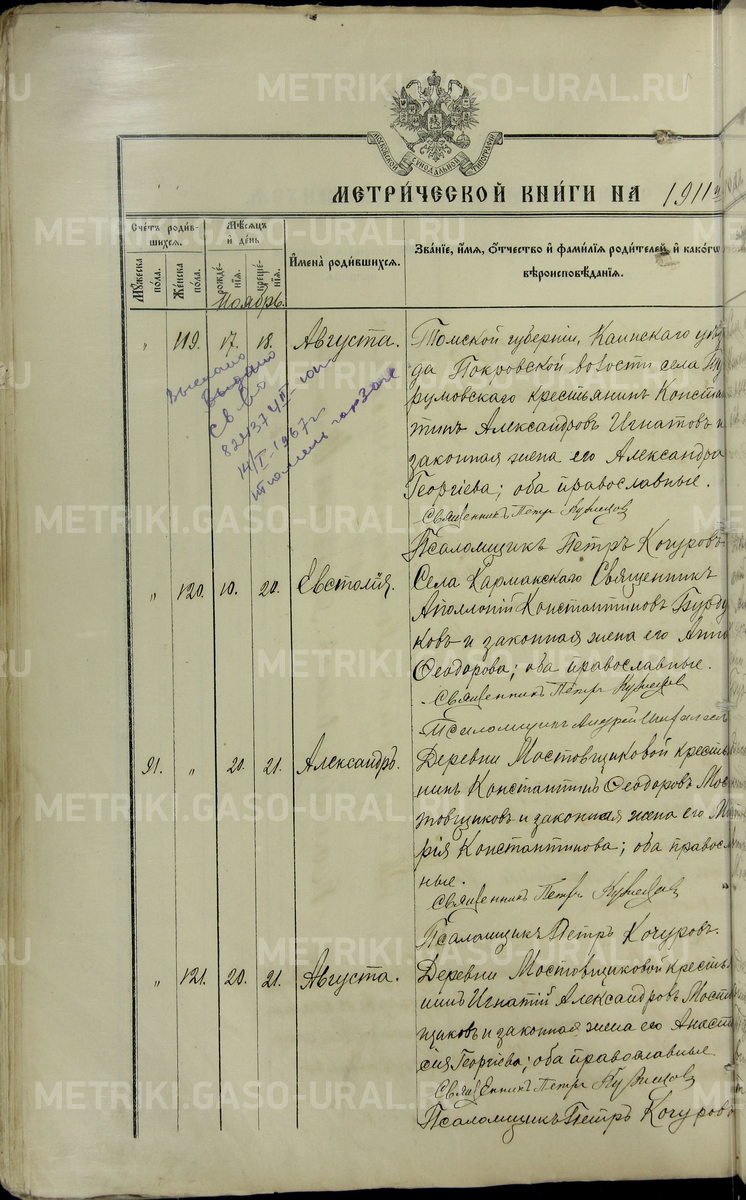 METRIKI.GASO-URAL.RU
МОСКОВСКОЙ СѴНОДАЛЬНОЙ ТИПОГРАФІИ
МЕТРИ́ЧЕСКОЙ КНИ́ГИ НА 1911й
Сче́тъ роди́вшихся.
Му́жеска по́ла.
Же́нска по́ла.
Мѣ́сяцъ и҆ де́нь
рожде́нїя.
креще́нїя.
И҆мена̀ роди́вшихся.
Зва́нїе, и҆́мя, ѻ҆́тчество и҆ фами́лїя роди́телей, и҆ како́гѡ вѣроисповѣ́данїя.
Ноябрь.
" 119. 17. 18. Августа.
Томской губерніи, Каинскаго уѣз
да Покровской волости села Ту
румовскаго крестьянинъ Конста
тинъ Александровъ Игнатовъ и
законная жена его Александра
Георгіева; оба православные.
Священникъ Петръ Кузнецов
Псаломщикъ Петръ Кочуровъ
Выслано
Выдано
св во
14/I-1967г
" 120. 10. 20. Евстолія.
Села Кармакскаго Священникъ
Аполлоній Константиновъ Бурду
ковъ и законная жена его Анна
Ѳеодорова; оба православные.
Священникъ Петръ Кузнецов
Псаломщикъ Андрей
91. " 20. 21. Александръ.
Деревни Мостовщиковой кресть
нинъ Константинъ Ѳеодоровъ Мос
товщиковъ и законная жена его Ма
рія Константинова; оба православ
ные.
Священникъ Петръ Кузнецов
Псаломщикъ Петръ Кочуровъ.
" 121. 20. 21. Августа.
Деревни Мостовщиковой кресть
нинъ Игнатій Александровъ Мостов
щиковъ и законная жена его Анаста
сія Георгіева; оба православные
Священникъ Петръ Кузнецов
Псаломщикъ Петръ Кочуровъ